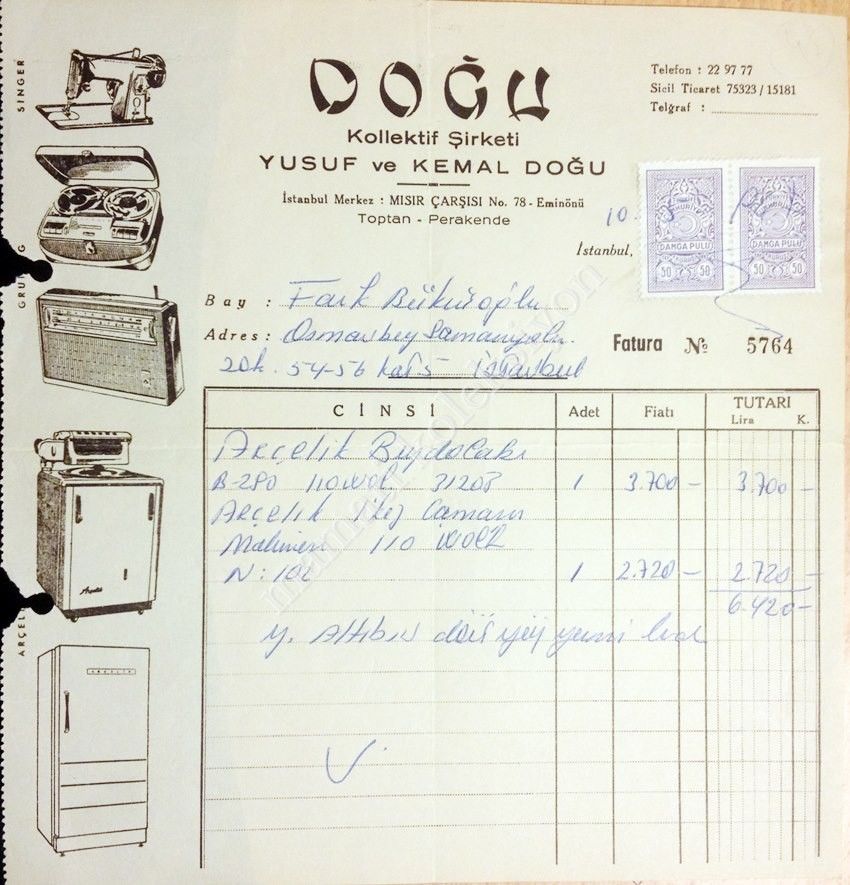 DOĞU
Kollektif Şirketi
YUSUF ve KEMAL DOĞU
İstanbul Merkez : MISIR ÇARŞISI No. 78 - Eminönü
Toptan - Perakende
Telefon : 22 97 77
Sicil Ticaret 75323 / 15181
Telğraf :
SINGER
GRUNDIG
ARÇELİK
DAMGA PULU
50 50
DAMGA PULU
50 50
İstanbul, 10
Bay :
Adres : Osmanbey
54-56 Kat 5 İstanbul
Fatura № 5764
CİNSİ Adet Fiatı TUTARI
Lira K.
Arçelik Buzdolabı
B-280 110 31208 1 3.700 — 3.700 —
Arçelik
110
N: 1 2.720 — 2.720 —
6.420 —
Y. Altıbin
Arçelik
ARÇELİK